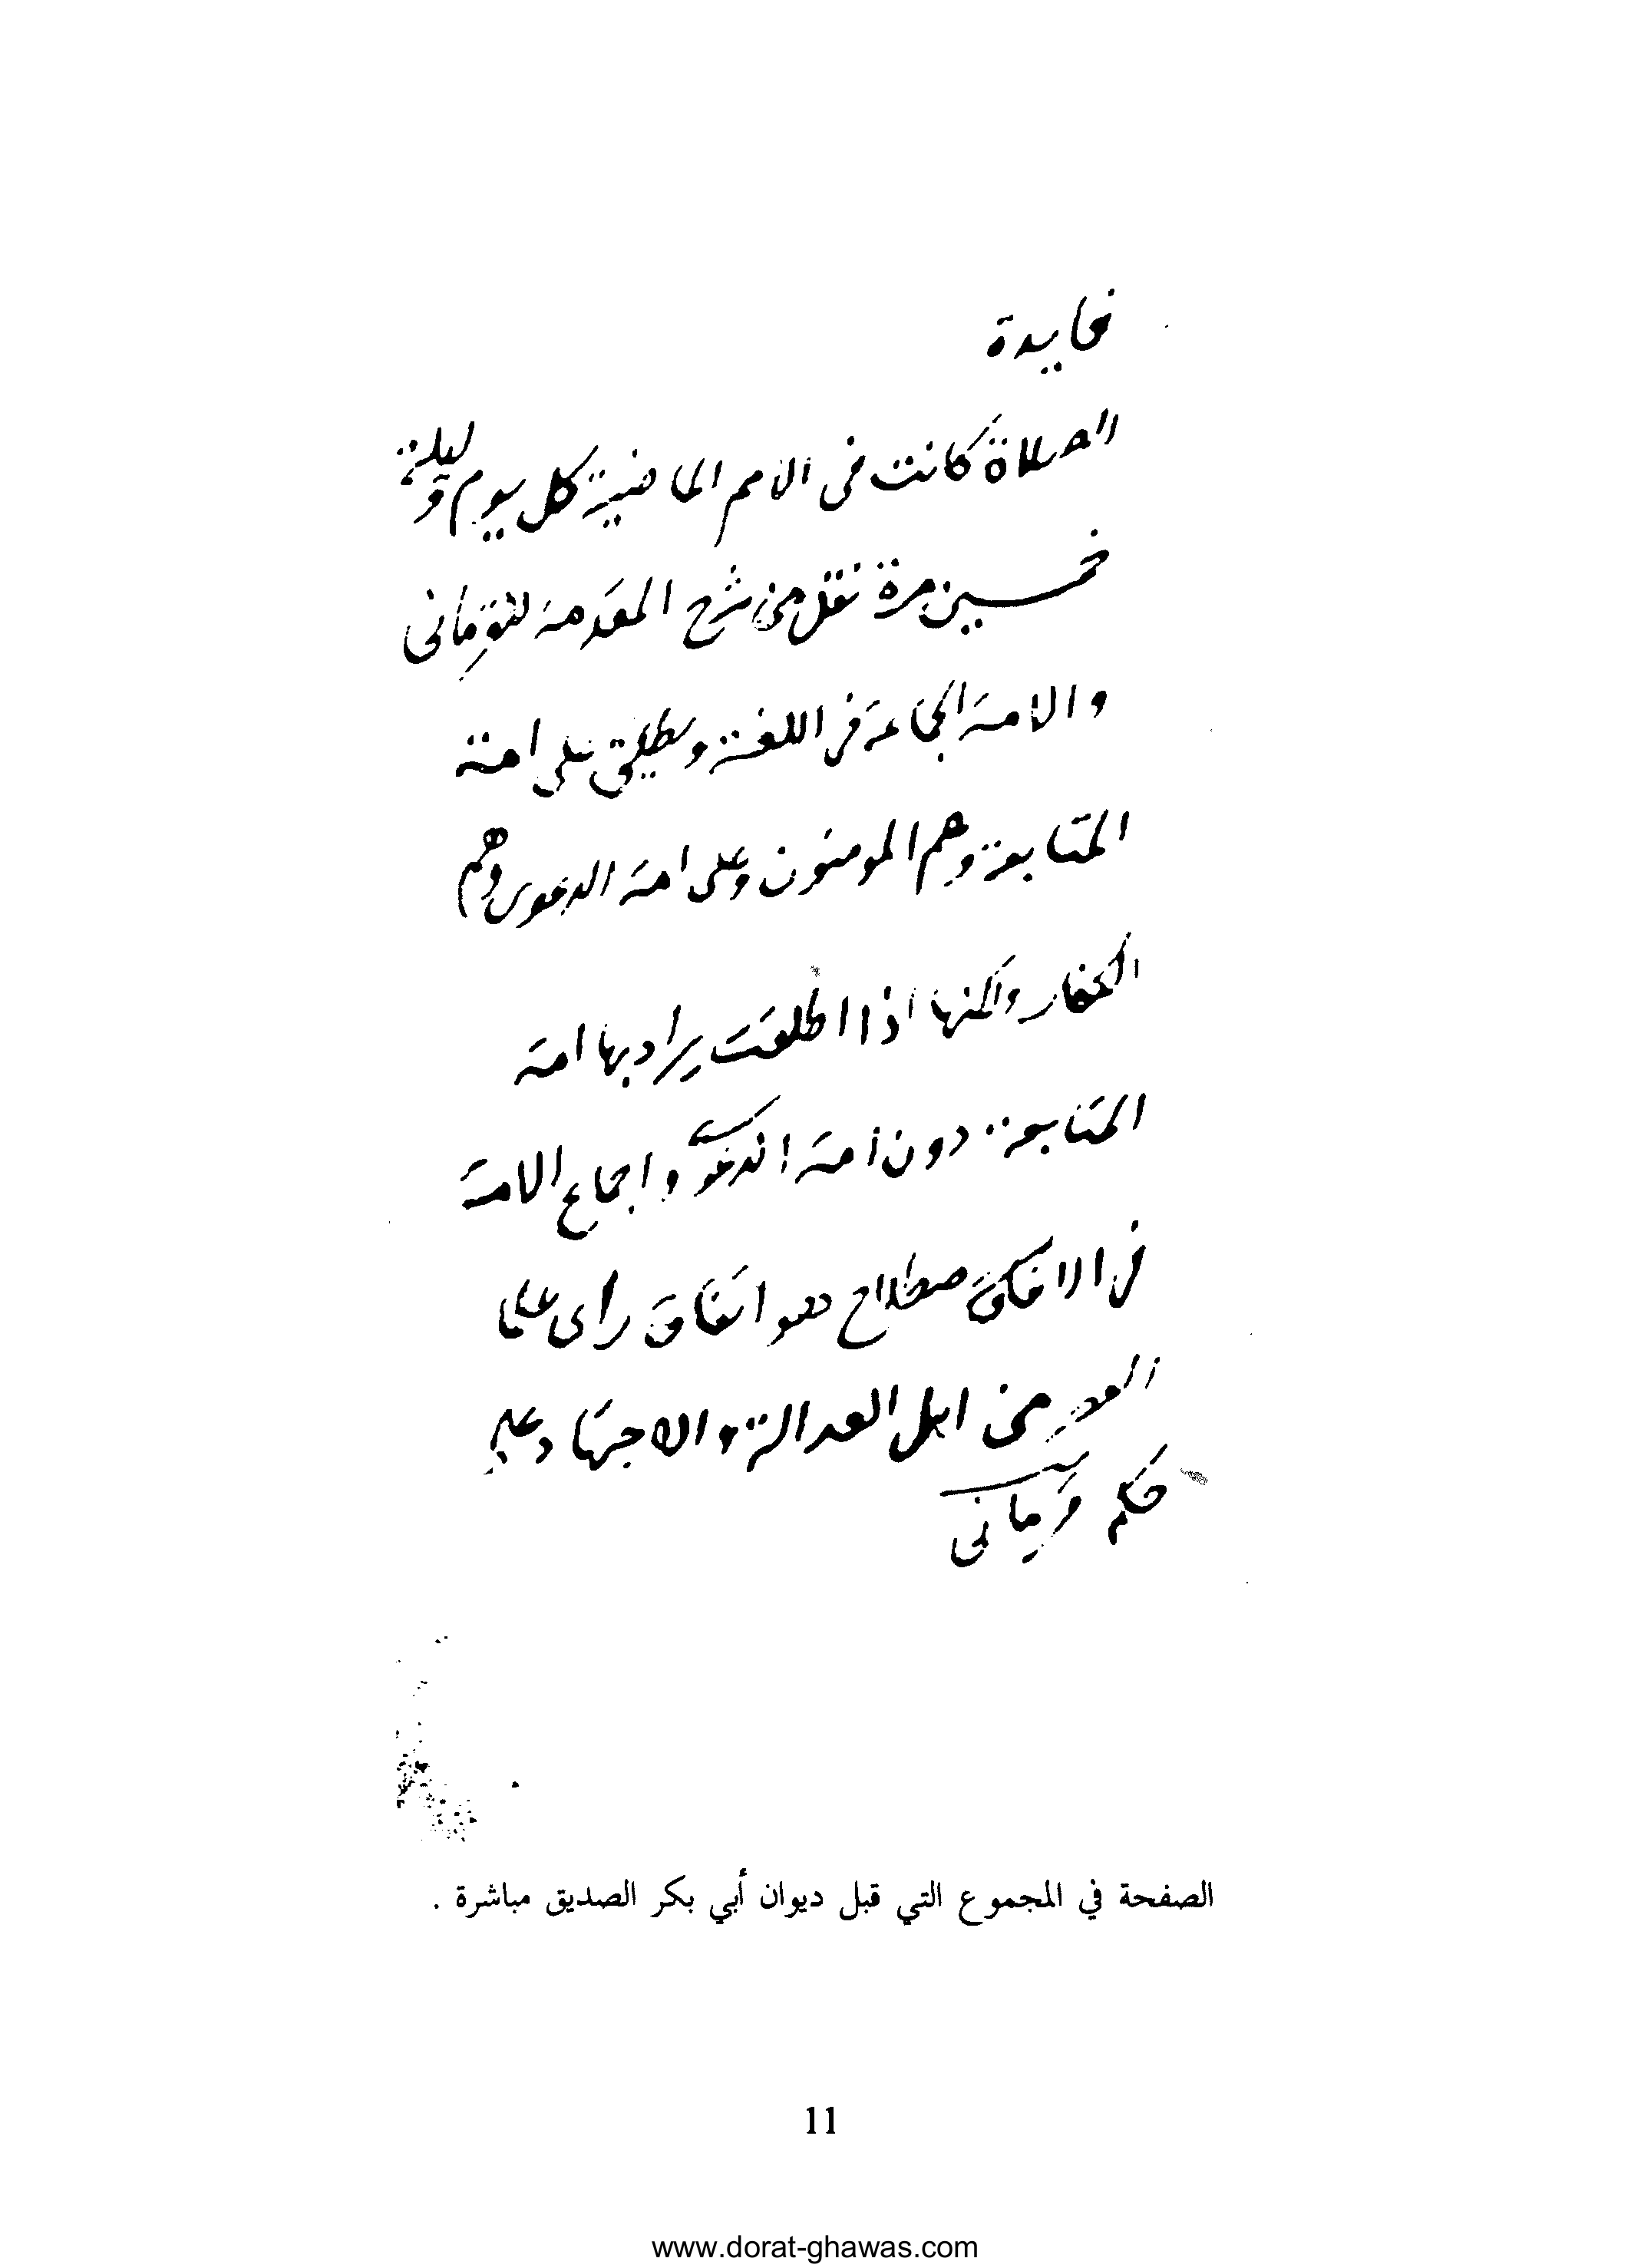 فايدة
الصلاة كانت فى الامم الماضية كل يوم وليلة
خمسين مرة نقل من شرح المقدمة
والامة الجماعة فى اللغة ويطلق على امة
المتابعة وهم المومنون وعلى امة الدعوى وهم
الكفار ولكنها اذا اطلقت يراد بها امة
المتابعة دون امة الدعو واجماع الامة
فى صطلاح هو اتفاق راى علما
العصر من اهل العدالة والاجتهاد على
حكم
الصفحة في المجموع التي قبل ديوان أبي بكر الصديق مباشرة .
11
www.dorat-ghawas.com